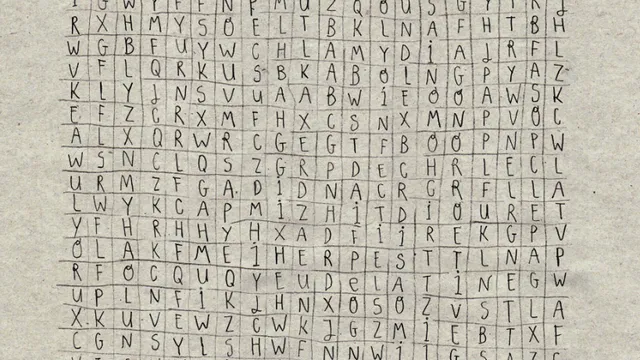 R X H M Y S O E L T B K L N A F H T B H
W G B F U Y W C H L A M Y D i A J R F L
V F L Q R K U S B K A B O L N G P Y A Z
K L Y J N S V U A A B W i E O O A W S K
E F Z C R X M F H X C S N X M N P V O C
A L X Q R W R C G E G T F B O O P N P W
W S N C L Q S Z G R P D E C H R L E C L
U R M Z F G A D i D N A C R G R F L L A
L W Y K C A P M i Z H i T D i O U R E T
Y F H R H H Y H X A D F i i R E K G P V
O L A K F M E i H E R P E S T T L N A P
R F O C Q U Q Y E U D e L A T i N E G W
U P L N F i K J H N X O S O Z V S T L A
X K U V E W Z C W K J G Z M i E B T X F
C G N S Y L S H W F N N W i